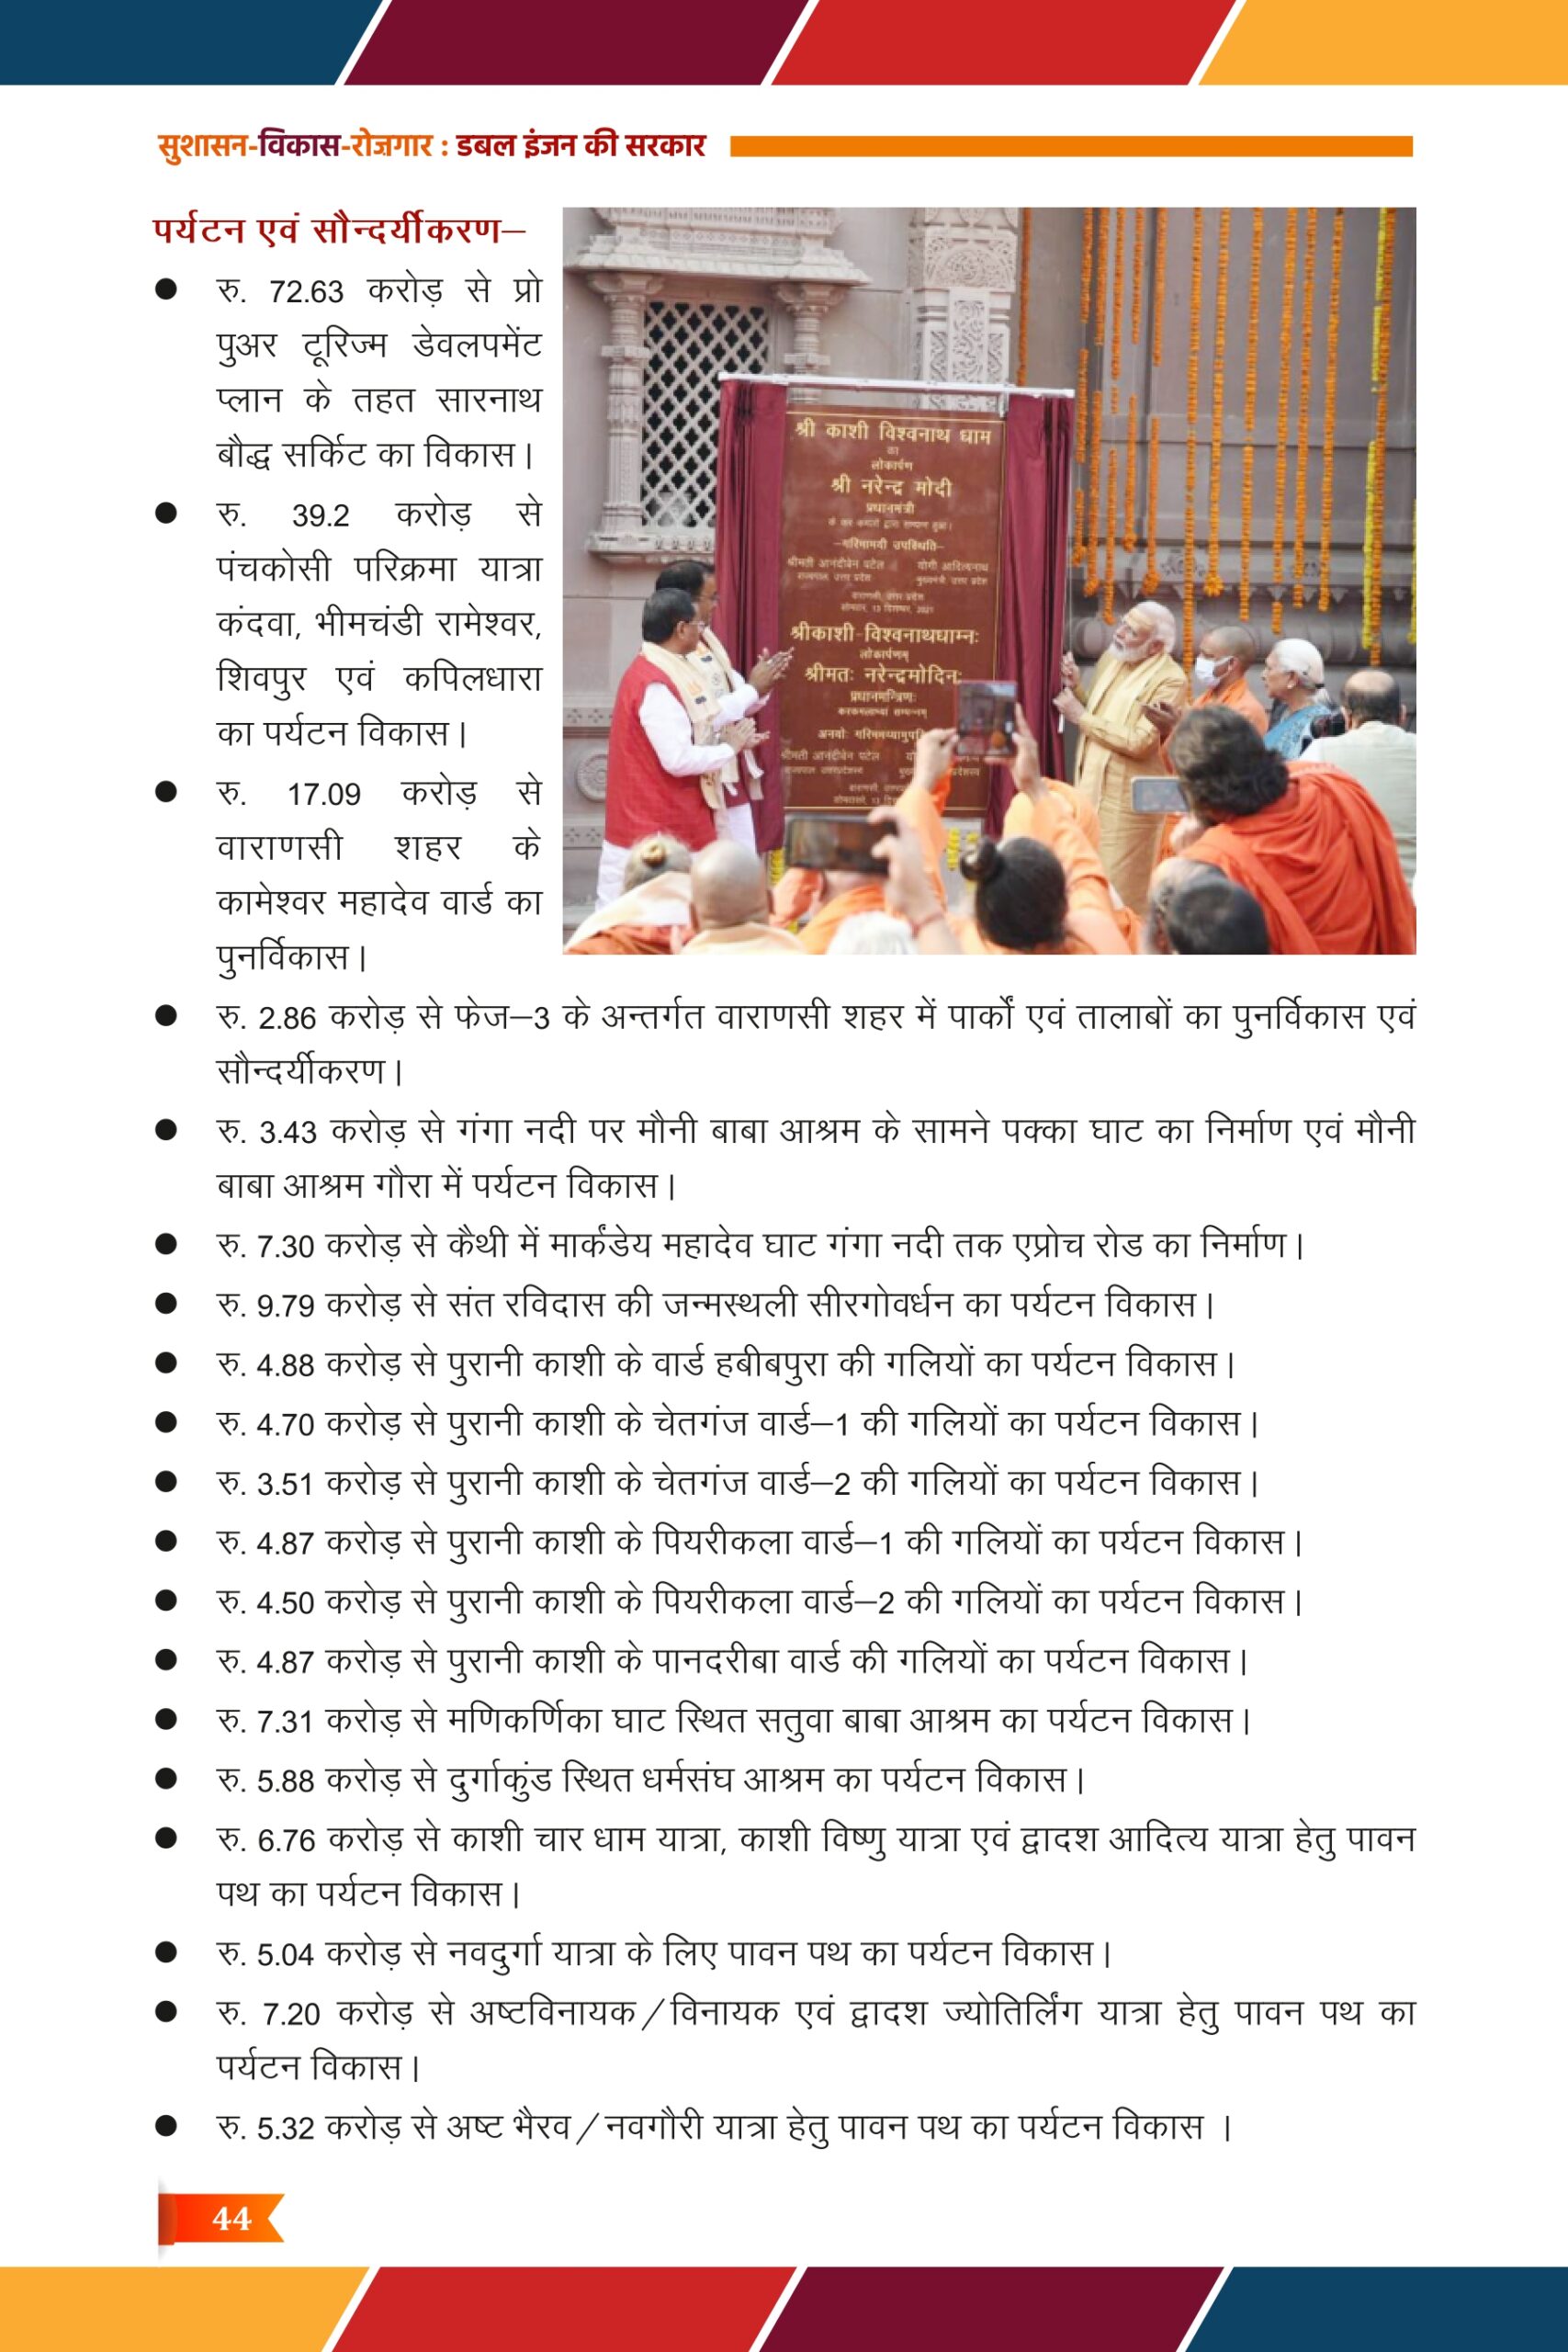 सुशासन-विकास-रोजगार : डबल इंजन की सरकार
पर्यटन एवं सौन्दर्यीकरण–
● रु. 72.63 करोड़ से प्रो
पुअर टूरिज्म डेवलपमेंट
प्लान के तहत सारनाथ
बौद्ध सर्किट का विकास।
● रु. 39.2 करोड़ से
पंचकोसी परिक्रमा यात्रा
कंदवा, भीमचंडी रामेश्वर,
शिवपुर एवं कपिलधारा
का पर्यटन विकास।
● रु. 17.09 करोड़ से
वाराणसी शहर के
कामेश्वर महादेव वार्ड का
पुनर्विकास।
श्री काशी विश्वनाथ धाम
का
लोकार्पण
श्री नरेन्द्र मोदी
प्रधानमंत्री
के कर कमलों द्वारा सम्पन्न हुआ।
–गरिमामयी उपस्थिति–
श्रीमती आनंदीबेन पटेल योगी आदित्यनाथ
राज्यपाल, उत्तर प्रदेश मुख्यमंत्री, उत्तर प्रदेश
वाराणसी, उत्तर प्रदेश
सोमवार, 13 दिसम्बर, 2021
श्रीकाशी-विश्वनाथधाम्नः
लोकार्पणम्
श्रीमतः नरेन्द्रमोदिनः
प्रधानमन्त्रिणः
श्रीमती आनंदीबेन पटेल
● रु. 2.86 करोड़ से फेज–3 के अन्तर्गत वाराणसी शहर में पार्कों एवं तालाबों का पुनर्विकास एवं
सौन्दर्यीकरण।
● रु. 3.43 करोड़ से गंगा नदी पर मौनी बाबा आश्रम के सामने पक्का घाट का निर्माण एवं मौनी
बाबा आश्रम गौरा में पर्यटन विकास।
● रु. 7.30 करोड़ से कैथी में मार्कंडेय महादेव घाट गंगा नदी तक एप्रोच रोड का निर्माण।
● रु. 9.79 करोड़ से संत रविदास की जन्मस्थली सीरगोवर्धन का पर्यटन विकास।
● रु. 4.88 करोड़ से पुरानी काशी के वार्ड हबीबपुरा की गलियों का पर्यटन विकास।
● रु. 4.70 करोड़ से पुरानी काशी के चेतगंज वार्ड–1 की गलियों का पर्यटन विकास।
● रु. 3.51 करोड़ से पुरानी काशी के चेतगंज वार्ड–2 की गलियों का पर्यटन विकास।
● रु. 4.87 करोड़ से पुरानी काशी के पियरीकला वार्ड–1 की गलियों का पर्यटन विकास।
● रु. 4.50 करोड़ से पुरानी काशी के पियरीकला वार्ड–2 की गलियों का पर्यटन विकास।
● रु. 4.87 करोड़ से पुरानी काशी के पानदरीबा वार्ड की गलियों का पर्यटन विकास।
● रु. 7.31 करोड़ से मणिकर्णिका घाट स्थित सतुवा बाबा आश्रम का पर्यटन विकास।
● रु. 5.88 करोड़ से दुर्गाकुंड स्थित धर्मसंघ आश्रम का पर्यटन विकास।
● रु. 6.76 करोड़ से काशी चार धाम यात्रा, काशी विष्णु यात्रा एवं द्वादश आदित्य यात्रा हेतु पावन
पथ का पर्यटन विकास।
● रु. 5.04 करोड़ से नवदुर्गा यात्रा के लिए पावन पथ का पर्यटन विकास।
● रु. 7.20 करोड़ से अष्टविनायक/विनायक एवं द्वादश ज्योतिर्लिंग यात्रा हेतु पावन पथ का
पर्यटन विकास।
● रु. 5.32 करोड़ से अष्ट भैरव/नवगौरी यात्रा हेतु पावन पथ का पर्यटन विकास ।
44